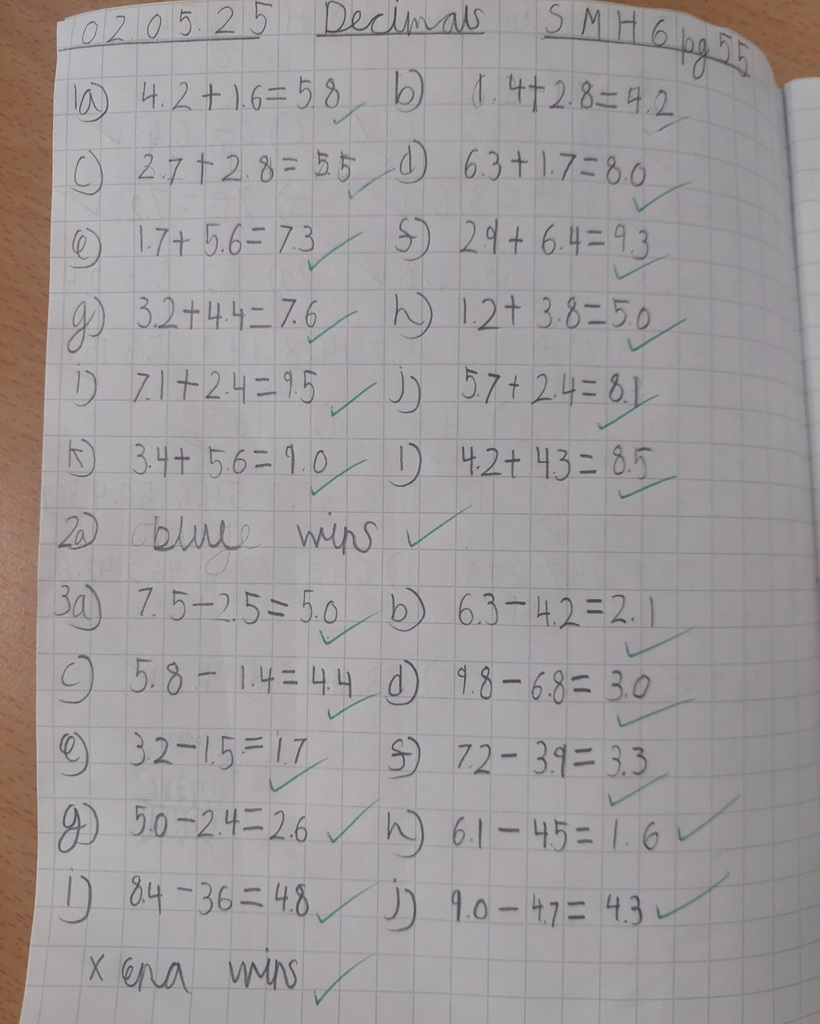 02.05.25 Decimals SMH6 pg55
1a) 4.2+1.6=5.8 b) 1.4+2.8=4.2
c) 2.7+2.8=5.5 d) 6.3+1.7=8.0
e) 1.7+5.6=7.3 f) 2.9+6.4=9.3
g) 3.2+4.4=7.6 h) 1.2+3.8=5.0
i) 7.1+2.4=9.5 j) 5.7+2.4=8.1
k) 3.4+5.6=9.0 l) 4.2+4.3=8.5
2a) blue wins
3a) 7.5-2.5=5.0 b) 6.3-4.2=2.1
c) 5.8-1.4=4.4 d) 9.8-6.8=3.0
e) 3.2-1.5=1.7 f) 7.2-3.9=3.3
g) 5.0-2.4=2.6 h) 6.1-4.5=1.6
i) 8.4-3.6=4.8 j) 9.0-4.7=4.3
xena wins